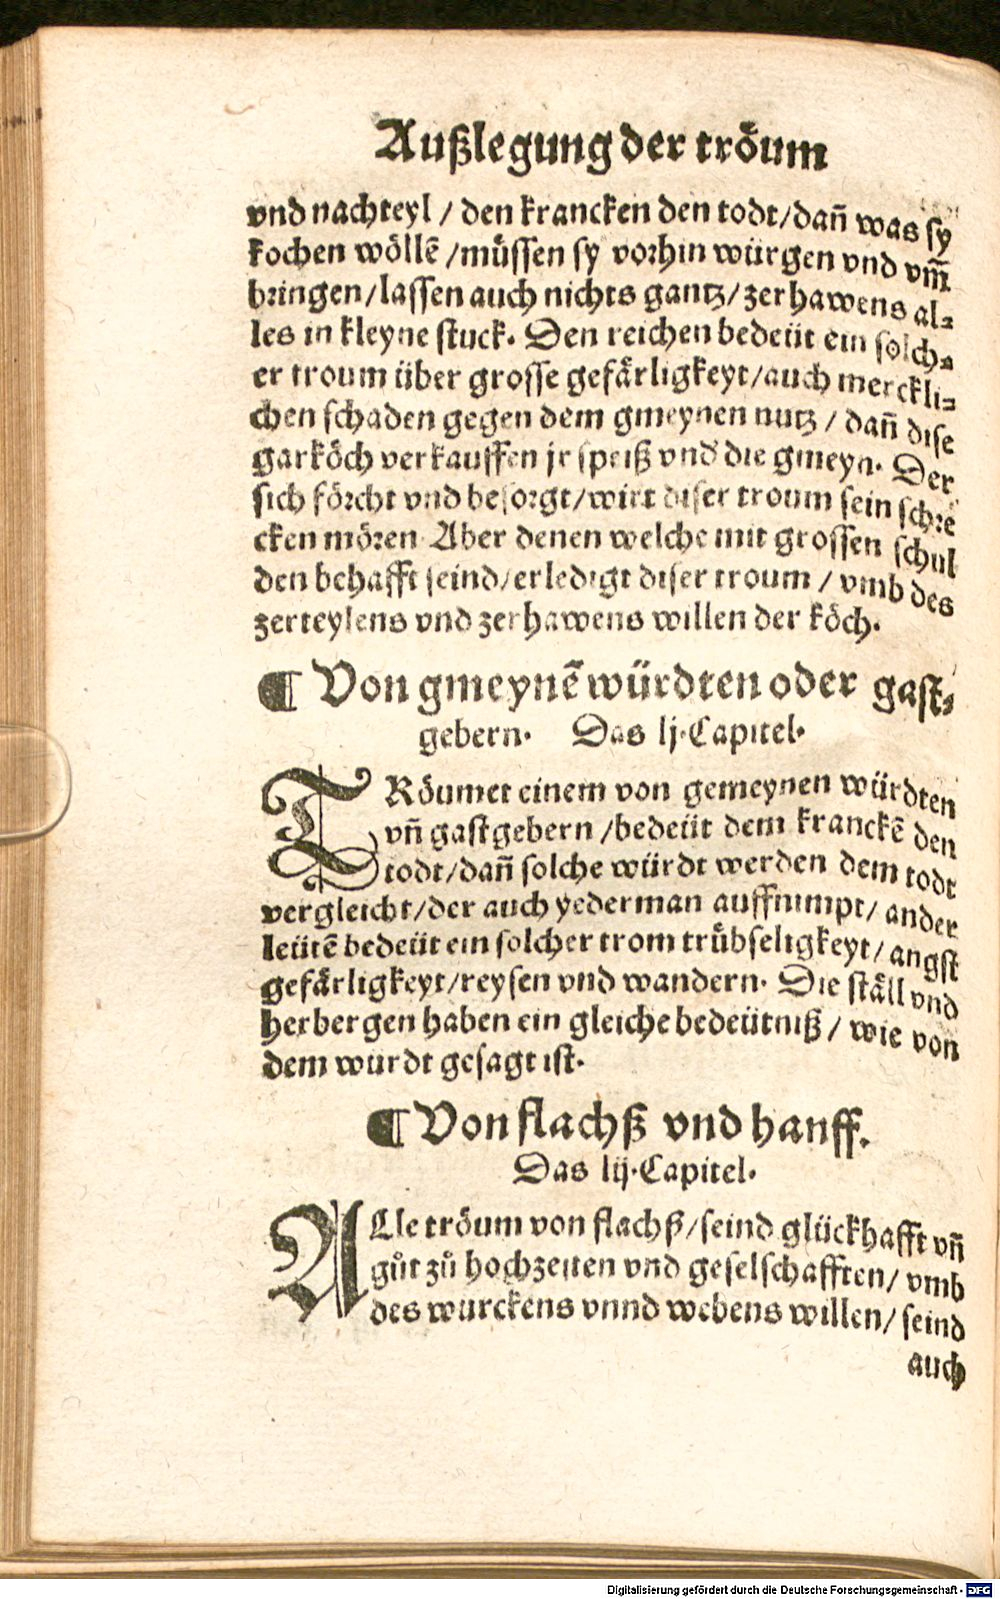 Außlegung der tröum
vnd nachteyl / den krancken den todt/dañ was sy
kochen wöllẽ /müssen sy vorhin würgen vnd vm̃
bringen/lassen auch nichts gantz/zerhawens al⸗
les in kleyne stuck. Den reichen bedeüt ein solch⸗
er troum über grosse gefärligkeyt/auch merckli⸗
chen schaden gegen dem gmeynen nutz / dañ dise
garköch verkauffen jr speiß vnd die gmeyn. Der
sich förcht vnd besorgt/wirt diser troum sein schre
cken mören Aber denen welche mit grossen schul
den behafft seind/erledigt diser troum / vmb des
zerteylens vnd zerhawens willen der köch.
¶ Von gmeynẽ würdten oder gast⸗
gebern. Das lj.Capitel.
TRöumet einem von gemeynen würdten
vñ gastgebern /bedeüt dem kranckẽ den
todt/dañ solche würdt werden dem todt
vergleicht/der auch yederman auffnimpt/ ander
leütẽ bedeüt ein solcher trom trübseligkeyt/ angst
gefärligkeyt/reysen vnd wandern. Die ställ vnd
herbergen haben ein gleiche bedeütniß / wie von
dem würdt gesagt ist.
¶ Von flachß vnd hanff.
Das lij.Capitel.
ALle tröum von flachß/seind glückhafft vñ
gůt zů hochzeiten vnd geselschafften/ vmb
des wurckens vnnd webens willen/ seind
auch
Digitalisierung gefördert durch die Deutsche Forschungsgemeinschaft - DFG